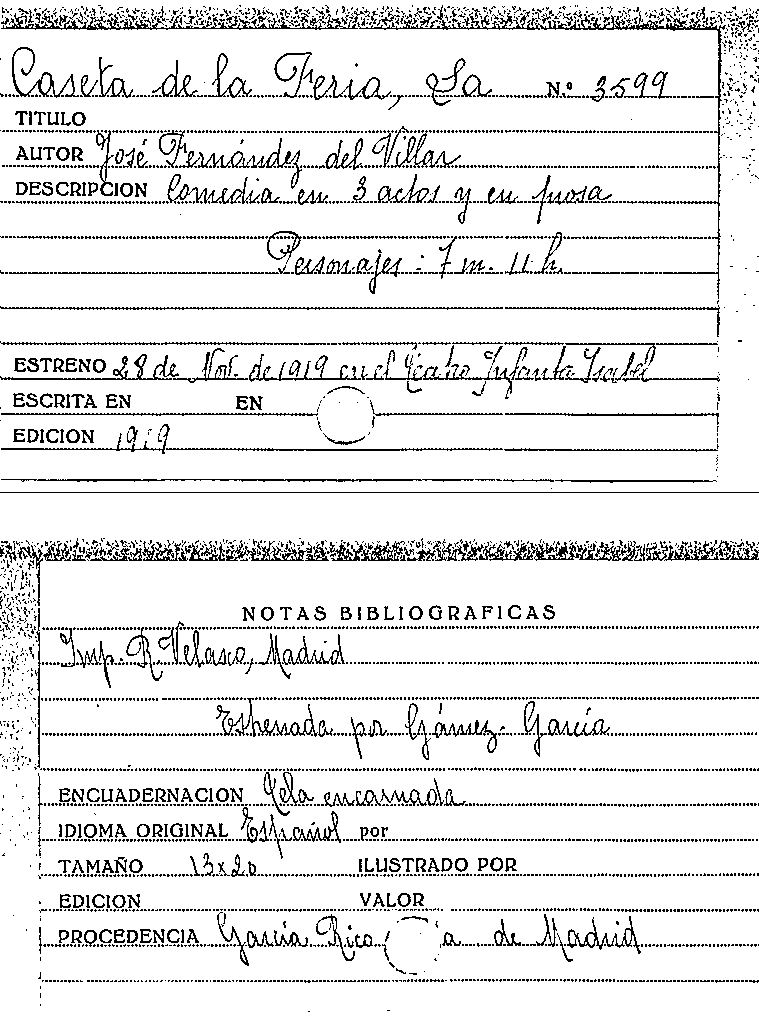 Caseta de la Feria, La N.º 3599
TITULO
AUTOR José Fernández del Villar
DESCRIPCION Comedia en 3 actos y en prosa
Personajes: 7 m. 11 h.
ESTRENO 28 de Nov. de 1919 en el Teatro Infanta Isabel
ESCRITA EN EN
EDICION 1919
NOTAS BIBLIOGRAFICAS
Imp. R. Velasco, Madrid
Estrenada por Gámez-García
ENCUADERNACION Tela encarnada
IDIOMA ORIGINAL Español por
TAMAÑO 13x20 ILUSTRADO POR
EDICION VALOR
PROCEDENCIA García Rico a de Madrid